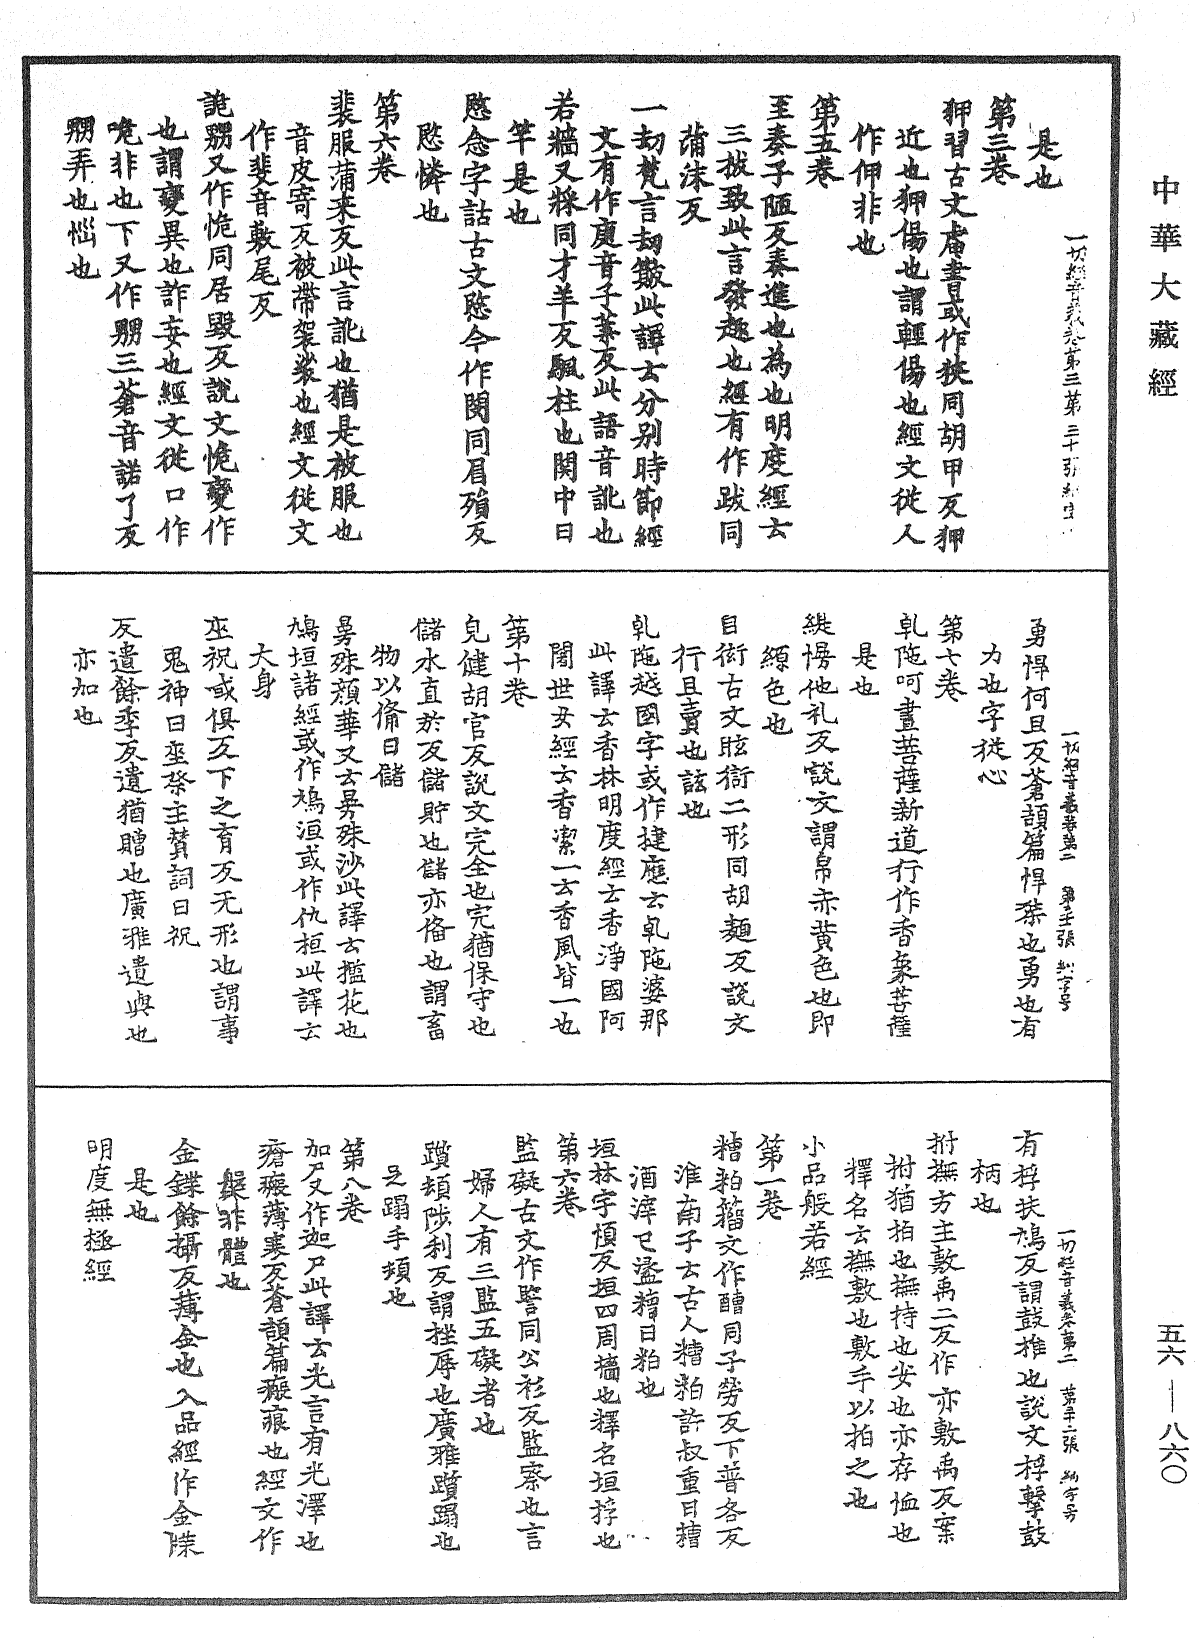 中華大藏經
一切經音義卷第三 第三十張
是也
第三卷
狎習古文庘書或作狹同胡甲反狎
近也狎傷也謂輕傷也經文從人
作伊非也
第五卷
至奏子陋反奏進也為也明度經云
三拔致此言發趣也經有作跋同
蒱沫反
一劫梵言劫簸此譯云分别時節經
文有作㢏音子葉反此語音訛也
若牆又牃同才羊反颿柱也関中曰
竿是也
愍念字詁古文愍今作閔同眉殞反
愍憐也
第六卷
裴服蒲来反此言訛也猶是被服也
音皮寄反被帶袈裟也經文從文
作斐音敷尾反
詭嬲又作恑同居毀反說文恑變作
也謂變異也詐妄也經文從口作
㖵非也下又作嬲三蒼音諾了反
嬲弄也惱也
一切經音義卷第二 第三十一張 糺字号
勇悍何旦反蒼頡篇悍桀也勇也有
力也字從心
第七卷
乹陁呵晝菩薩新道行作香象菩薩
是也
緹慢他礼反說文謂帛赤黄色也即
縓色也
自衒古文眩衒二形同胡麵反說文
行且賣也詃也
乹陁越國字或作揵應云乹陁婆那
此譯云香林明度經云香淨國阿
闍世女經云香潔一云香風皆一也
第十卷
皃健胡官反說文完全也完猶保守也
儲水直於反儲貯也儲亦俻也謂畜
物以俻曰儲
㬅殊顏華又云㬅殊沙此譯云檻花也
鳩垣諸經或作鳩洹或作仇桓此譯云
大身
巫祝或俱反下之育反无形也謂事
鬼神曰巫祭主賛詞曰祝
反遺餘季反遺猶贈也廣雅遺與也
亦加也
一切經音義卷第二 第三十二張 糺字号
有桴扶鳩反謂鼓推也說文桴擊鼓
柄也
拊撫方主敷禹二反作亦敷禹反案
拊猶拍也撫持也安也亦存恤也
釋名云撫敷也敷手以拍之也
小品般若經
第一卷
糟粕籀文作醩同子勞反下普各反
淮南子云古人糟粕許叔重曰糟
酒滓已盝糟曰粕也
垣林字愼反垣四周牆也釋名垣捋也
第六卷
監礙古文作譼同公衫反監察也言
婦人有三監五礙者也
躓頓陟利反謂挫辱也廣雅躓蹋也
足蹋手頓也
第八卷
加尸又作迦尸此譯云光言有光澤也
瘡瘢薄寒反蒼頡篇瘢痕也經文作
槃非體也
金鍱餘攝反薄金也入品經作金牒
是也
明度無極經
五六—八六〇